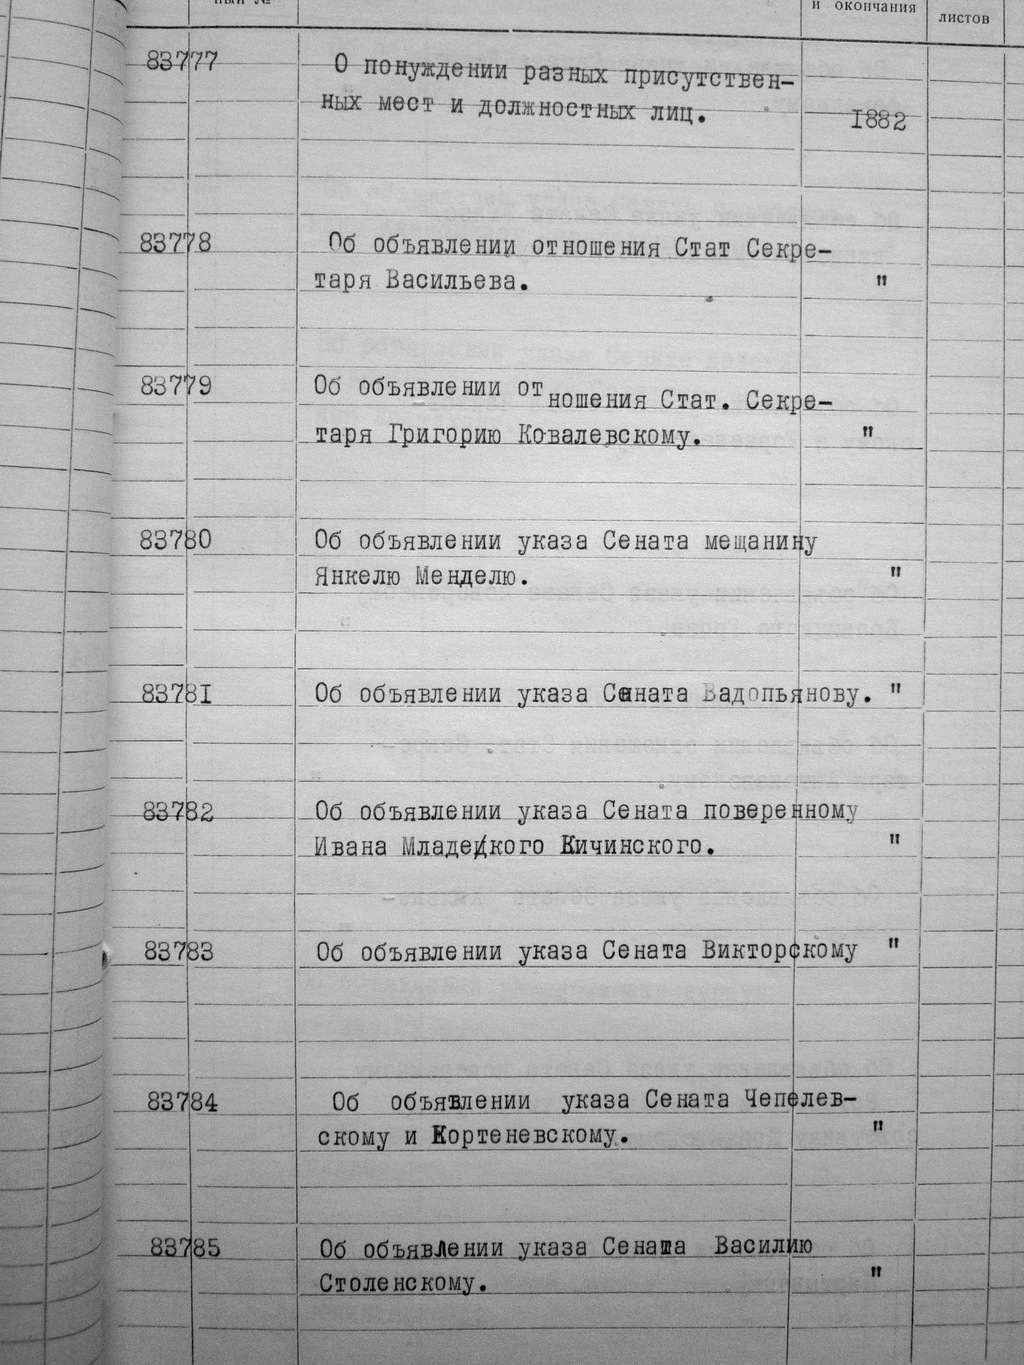 ный №
и окончания
листов
83777 О понуждении разных присутствен-
ных мест и должностных лиц. 1882
83778 Об объявлении отношения Стат Секре-
таря Васильева. "
83779 Об объявлении отношения Стат. Секре-
таря Григорию Ковалевскому. "
83780 Об объявлении указа Сената мещанину
Янкелю Менделю. "
83781 Об объявлении указа Сената Вадопьянову. "
83782 Об объявлении указа Сената поверенному
Ивана Младецкого Кичинского. "
83783 Об объявлении указа Сената Викторскому "
83784 Об объявлении указа Сената Чепелев-
скому и Кортеневскому. "
83785 Об объявлении указа Сената Василию
Столенскому. "